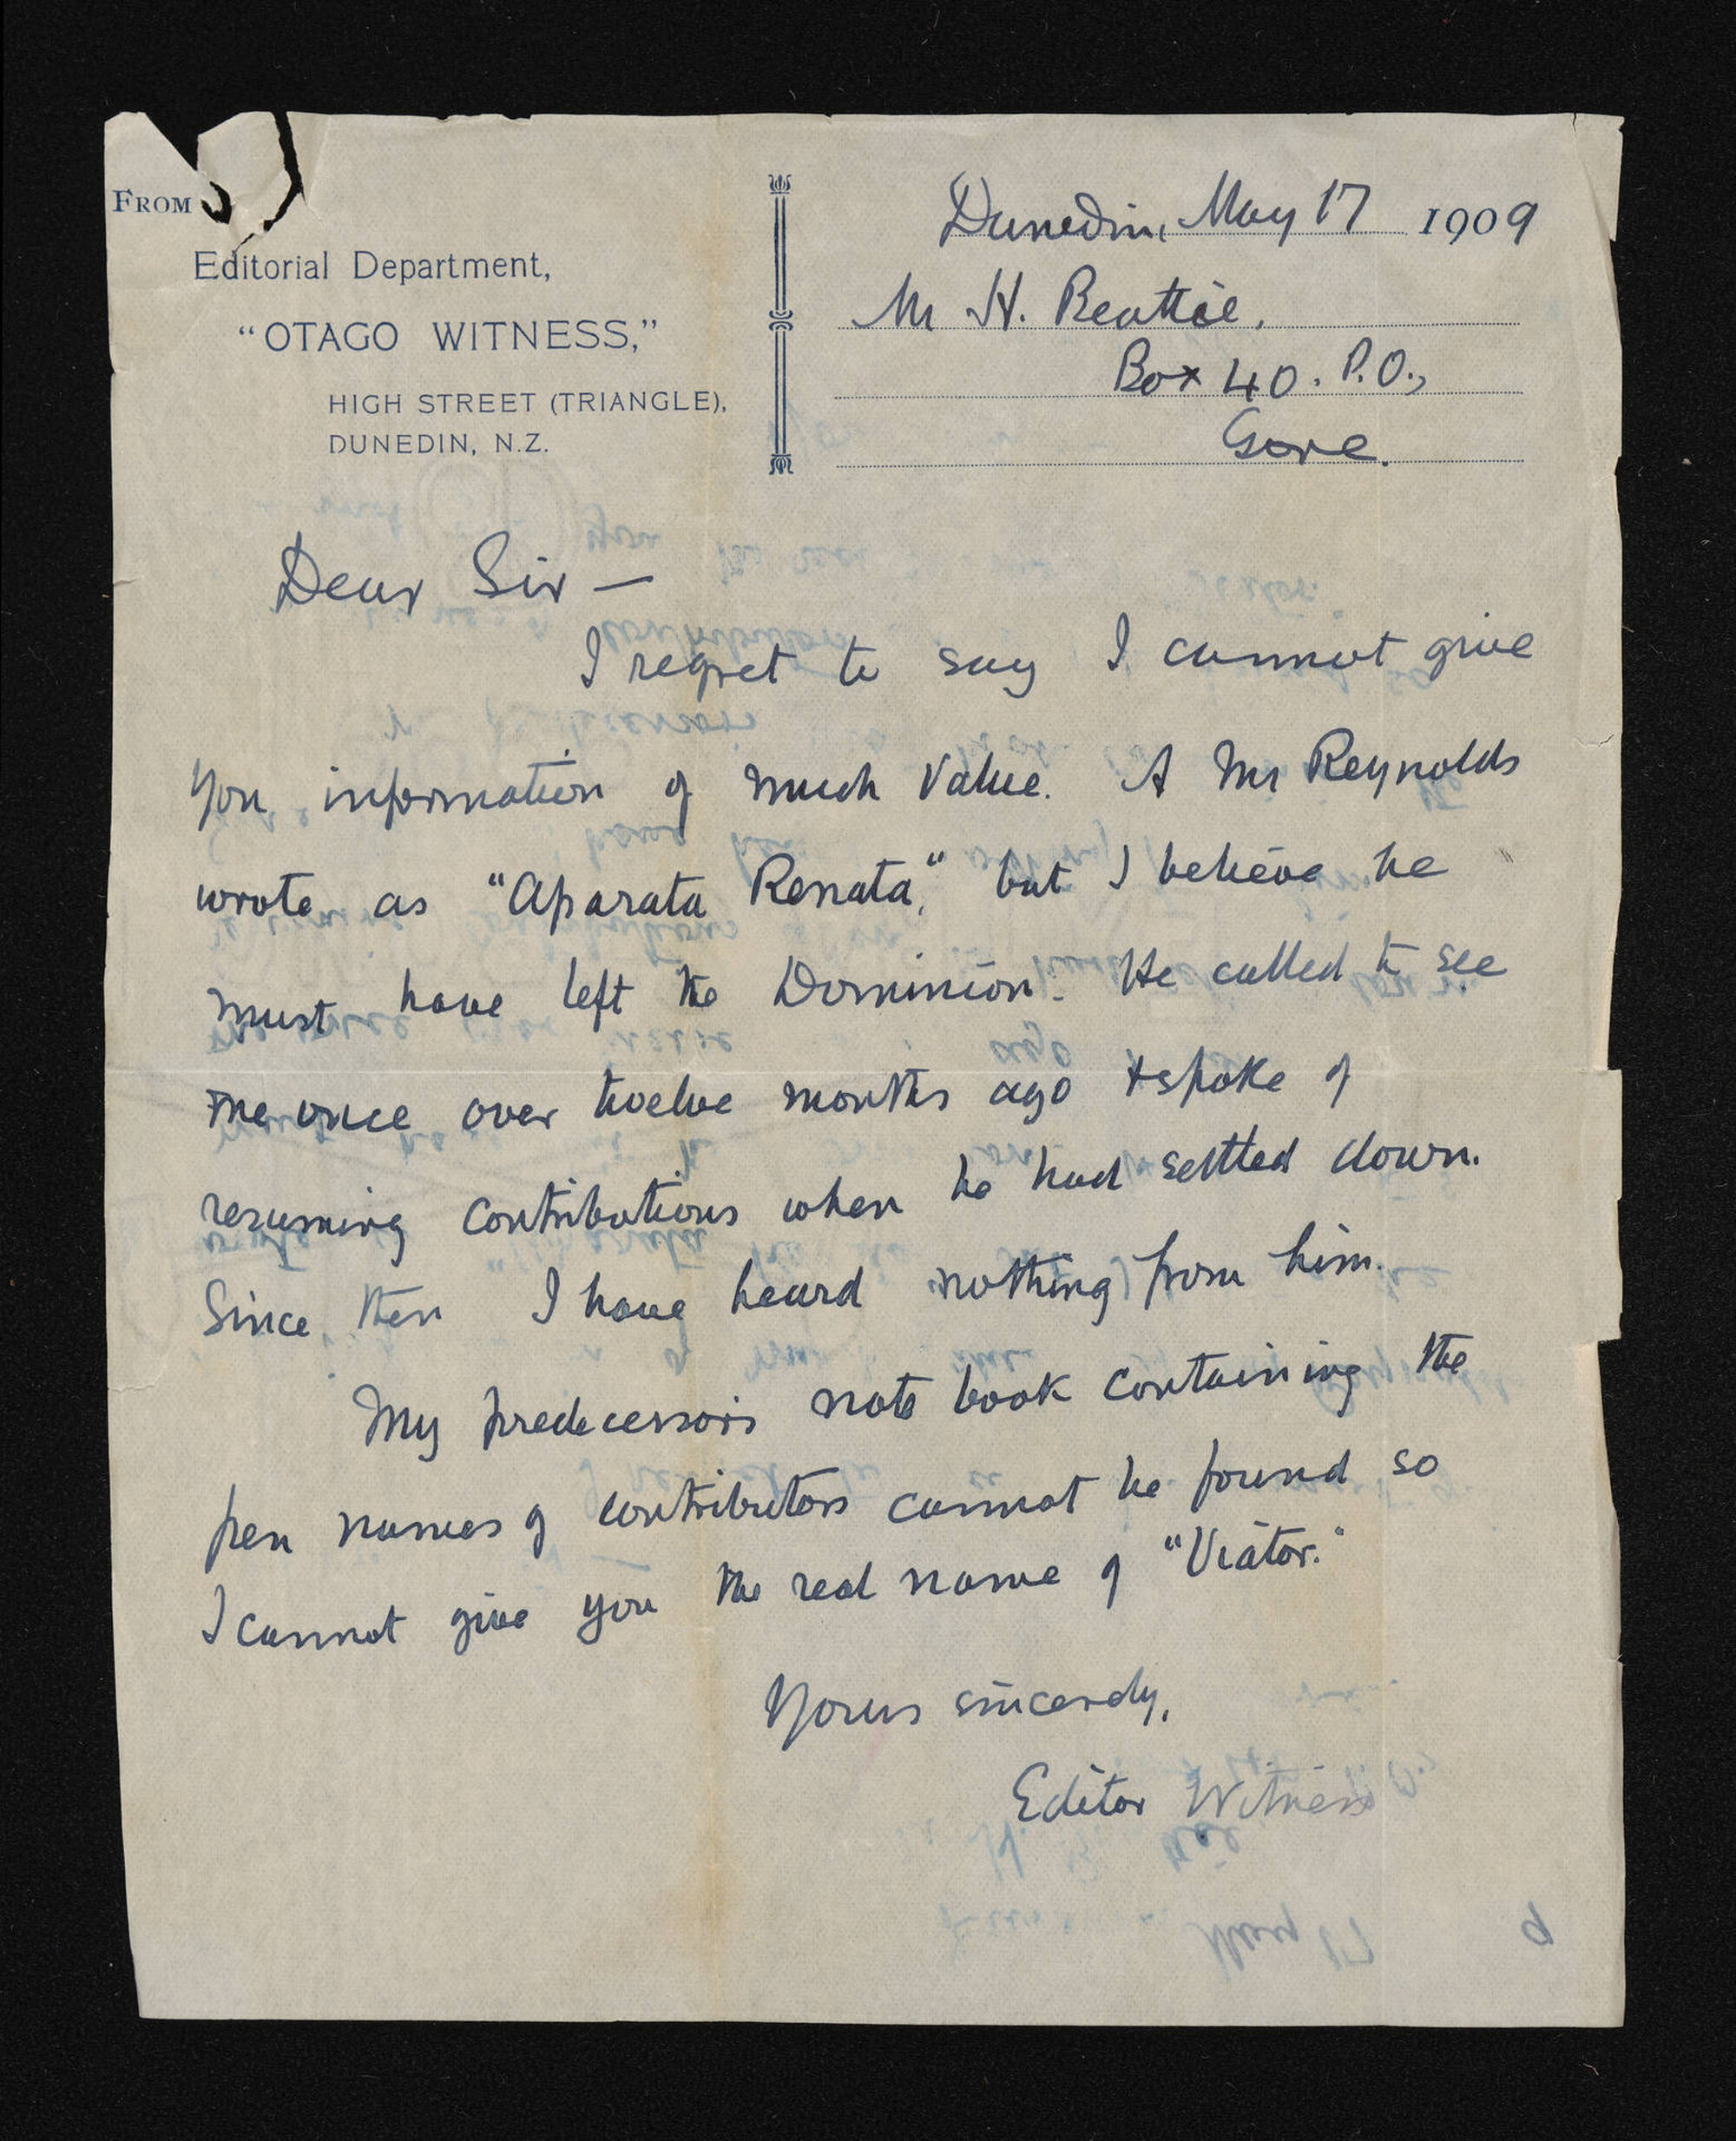 FROM
Editorial Department,
"OTAGO WITNESS,"
HIGH STREET (TRIANGLE),
DUNEDIN, N.Z.
Dunedin, May 17 1909
Mr H. Beattie,
Box 40. P.O.,
Gore.
Dear Sir —
I regret to say I cannot give
you information of much value. A Mr Reynolds
wrote as "Aparata Renata," but I believe he
must have left the Dominion. He called to see
me once over twelve months ago & spoke of
resuming contributions when he had settled down.
Since then I have heard nothing from him.
My predecessor's note book containing the
pen names of contributors cannot be found so
I cannot give you the real name of "Viator."
Yours sincerely,
Editor Witness